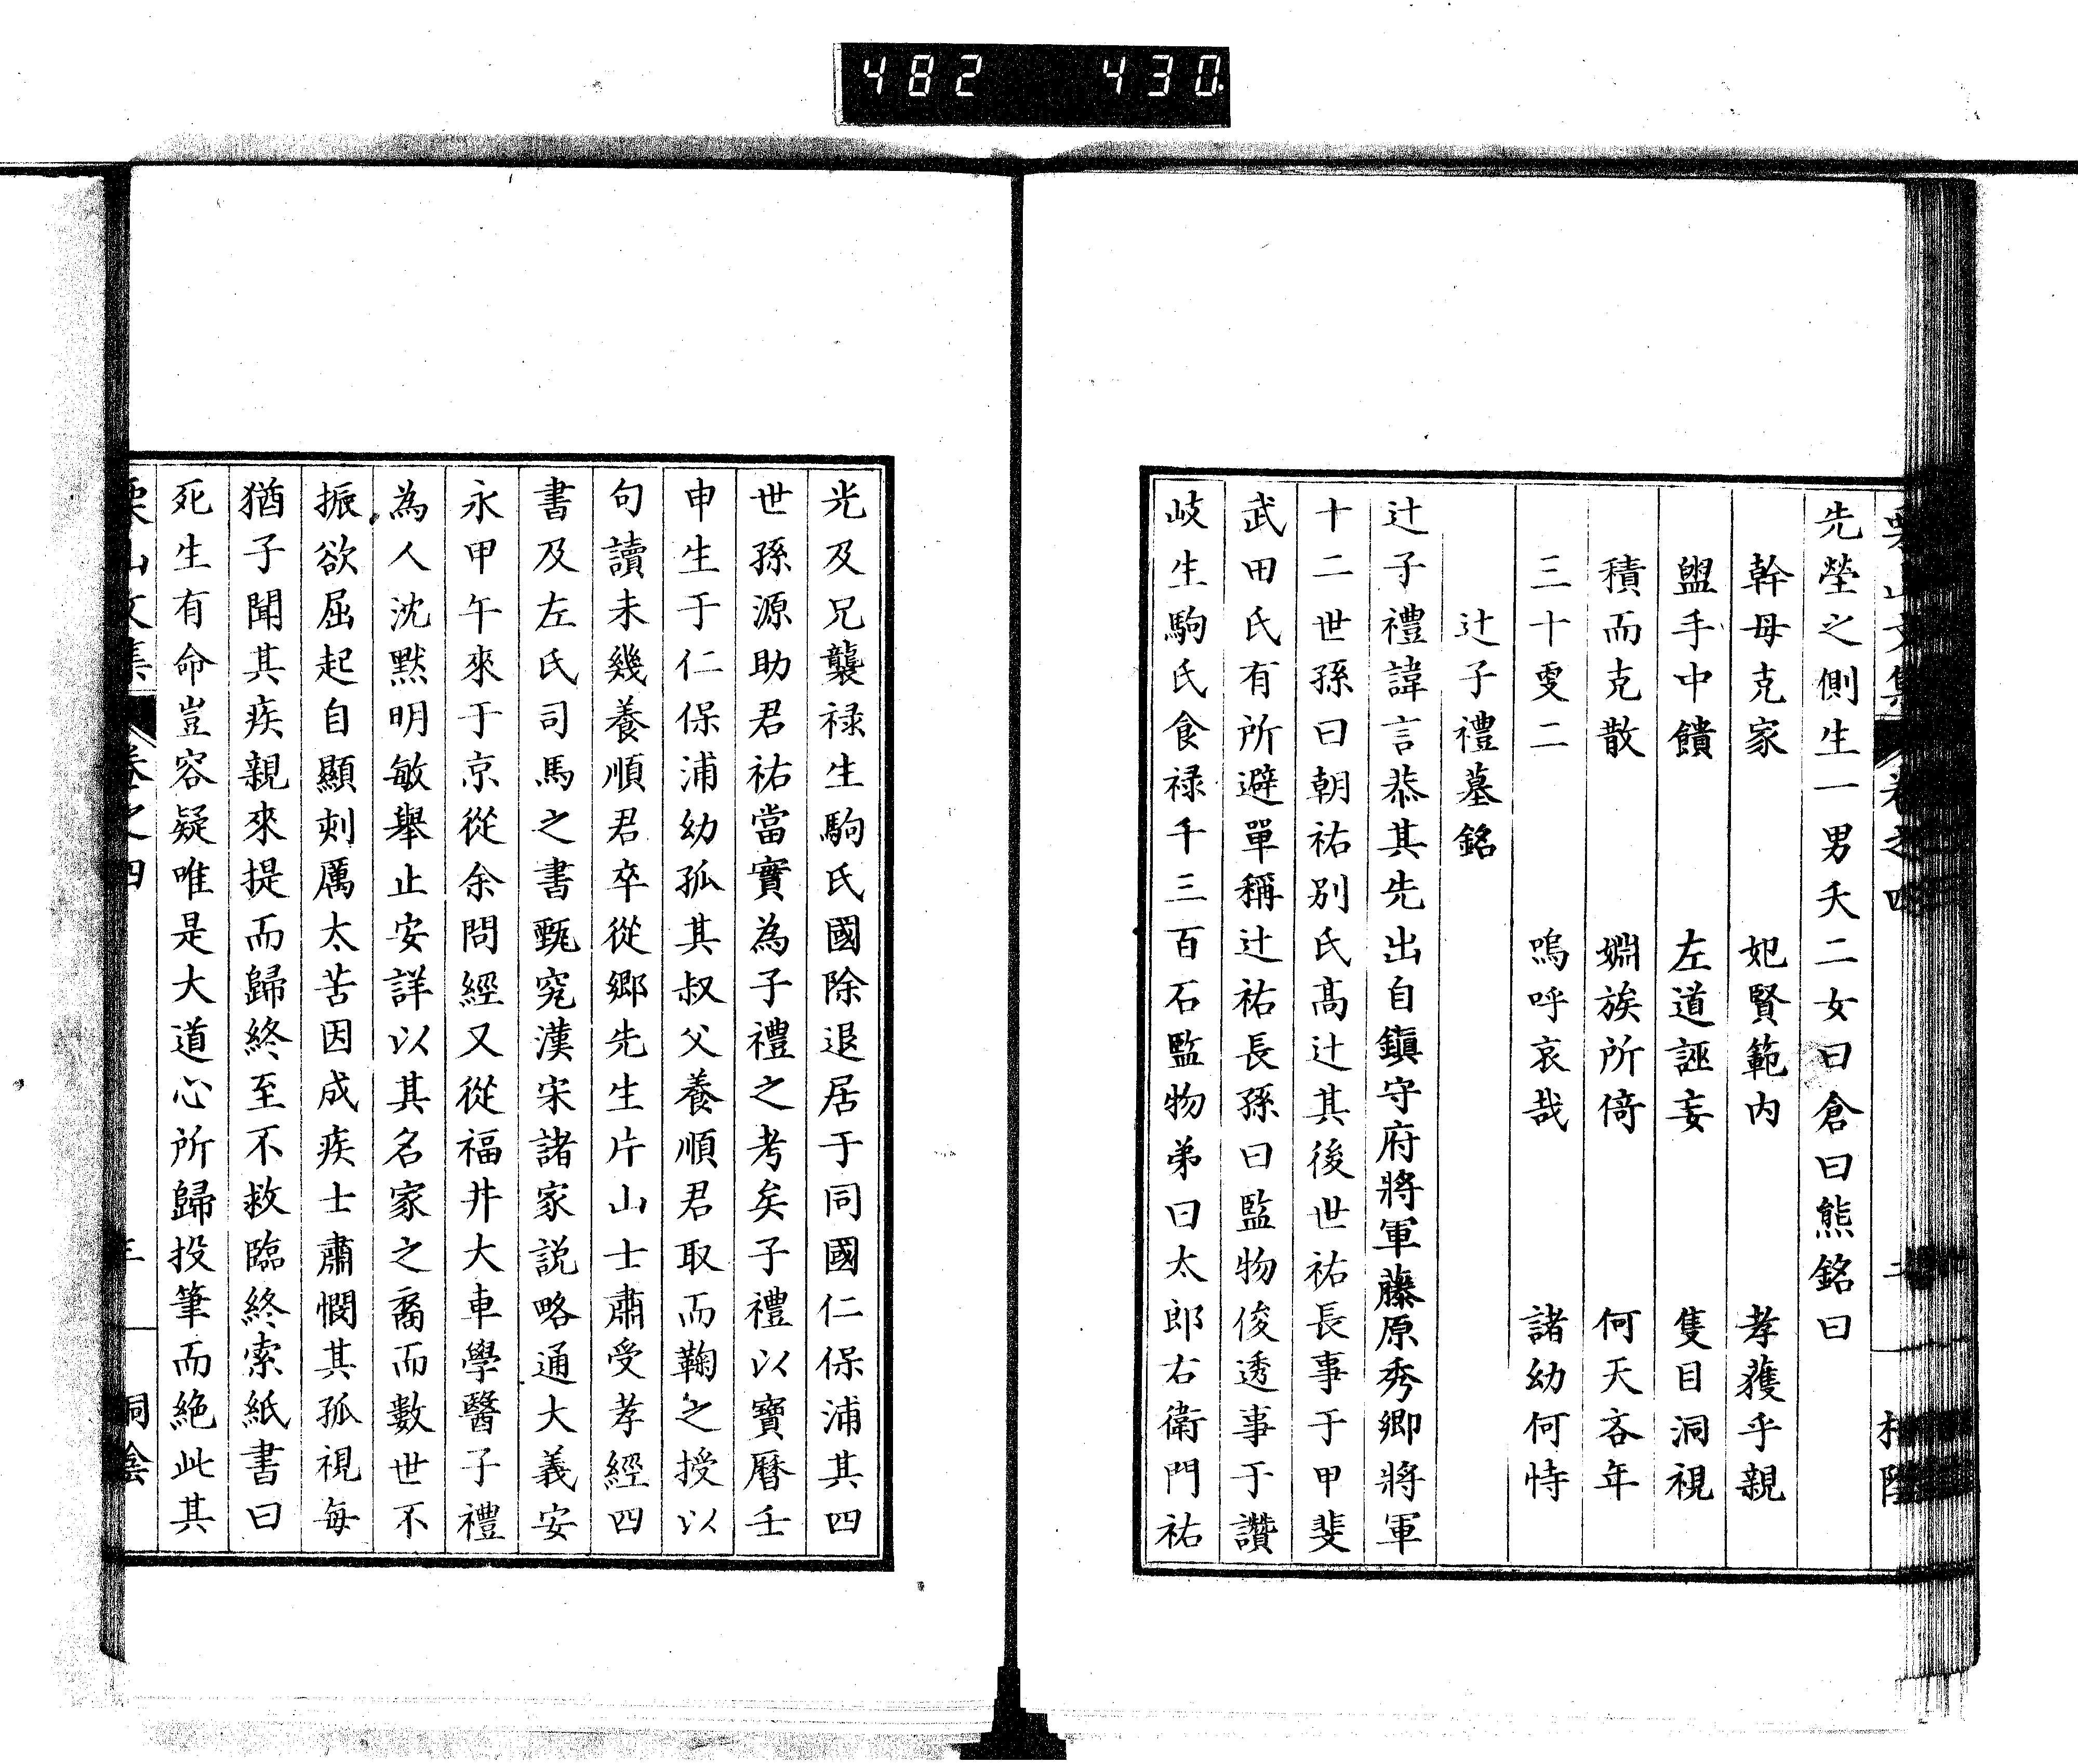 482 430
先塋之側生一男夭二女曰倉曰熊銘曰
幹母克家 妃賢範内 孝獲乎親
盥手中饋 左道誣妄 隻目洞視
積而克散 婣族所倚 何天吝年
三十雯二 嗚呼哀哉 諸幼何恃
辻子禮墓銘
辻子禮諱言恭其先出自鎮守府將軍藤原秀卿將軍
十二世孫曰朝祐別氏髙辻其後世祐長事于甲斐
武田氏有所避單稱辻祐長孫曰監物俊透事于讚
岐生駒氏食禄千三百石監物弟曰太郎右衛門祐
光及兄襲禄生駒氏國除退居于同國仁保浦其四
世孫源助君祐當實為子禮之考矣子禮以寶曆壬
申生于仁保浦幼孤其叔父養順君取而鞠之授以
句讀未幾養順君卒從郷先生片山士肅受孝經四
書及左氏司馬之書甄究漢宋諸家説略通大義安
永甲午來于京從余問經又從福井大車學醫子禮
為人沈黙明敏舉止安詳以其名家之裔而數世不
振欲屈起自顯刺厲太苦因成疾士肅憫其孤視每
猶子聞其疾親來提而歸終至不救臨終索紙書曰
死生有命豈容疑唯是大道心所歸投筆而絶此其
山文集 卷之四